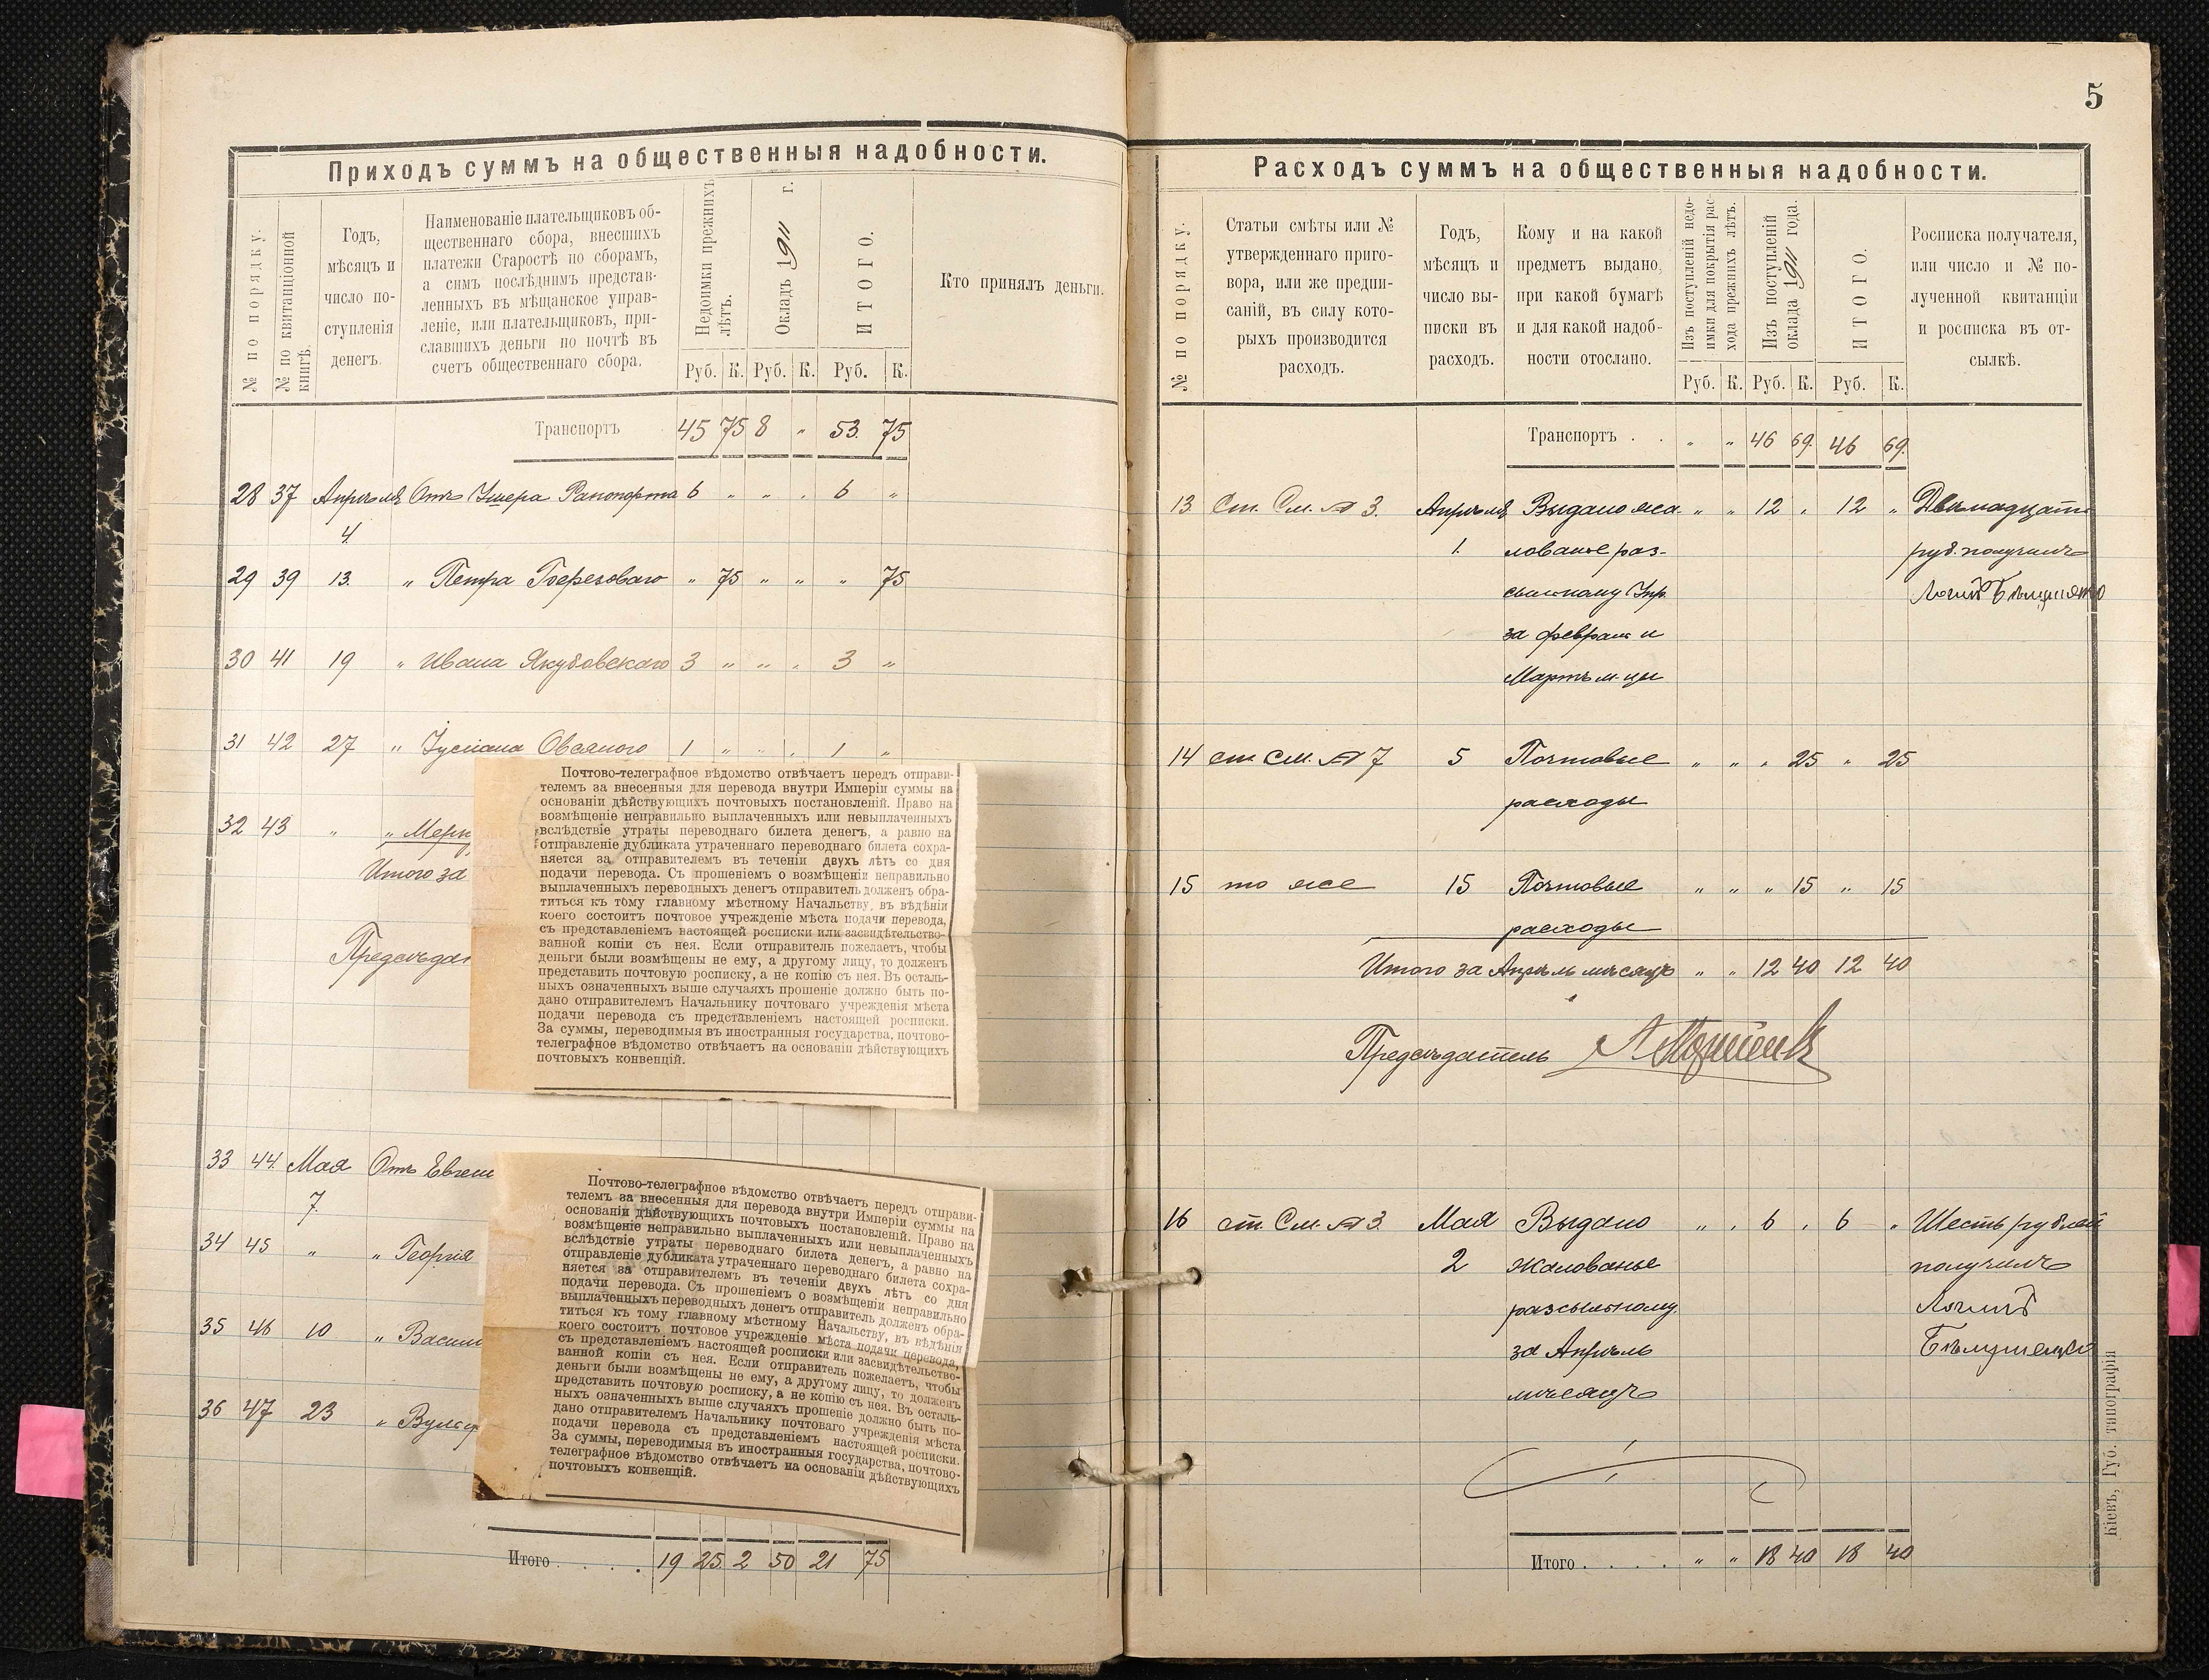 5
Приходъ суммъ на общественныя надобности.
№ по порядку.
№ по квитанціонной
книгѣ.
Годъ,
мѣсяцъ и
число по-
ступленія
денегъ.
Наименованіе плательщиковъ об-
щественнаго сбора, внесшихъ
платежи Старостѣ по сборамъ,
а симъ послѣднимъ представ-
ленныхъ въ мѣщанское управ-
леніе, или плательщиковъ, при-
славшихъ деньги по почтѣ въ
счетъ общественнаго сбора.
Недоимки прежнихъ
лѣтъ.
Окладъ 1911 г.
ИТОГО.
Кто принялъ деньги.
Руб. К. Руб. К. Руб. К.
Транспортъ 45 75 8 „ 53. 75
28 37 Апрѣля Отъ Ушера Рапопорта 6 „ „ „ 6 „
4.
29 39 13. „ Петра Березоваго „ 75 „ „ „ 75
30 41 19 „ Ивана Якубовскаго 3 „ „ „ 3 „
31 42 27 „ Овсяного 1 „ „ „ 1 „
32 43 „ „ Мерк
Итого за
Предсѣдат
Почтово-телеграфное вѣдомство отвѣчаетъ передъ отправи-
телемъ за внесенныя для перевода внутри Имперіи суммы на
основаніи дѣйствующихъ почтовыхъ постановленій. Право на
возмѣщеніе неправильно выплаченныхъ или невыплаченныхъ
вслѣдствіе утраты переводнаго билета денегъ, а равно на
отправленіе дубликата утраченнаго переводнаго билета сохра-
няется за отправителемъ въ теченіи двухъ лѣтъ со дня
подачи перевода. Съ прошеніемъ о возмѣщеніи неправильно
выплаченныхъ переводныхъ денегъ отправитель долженъ обра-
титься къ тому главному мѣстному Начальству, въ вѣдѣніи
коего состоитъ почтовое учрежденіе мѣста подачи перевода,
съ представленіемъ настоящей росписки или засвидѣтельство-
ванной копіи съ нея. Если отправитель пожелаетъ, чтобы
деньги были возмѣщены не ему, а другому лицу, то долженъ
представить почтовую росписку, а не копію съ нея. Въ осталь-
ныхъ означенныхъ выше случаяхъ прошеніе должно быть по-
дано отправителемъ Начальнику почтоваго учрежденія мѣста
подачи перевода съ представленіемъ настоящей росписки.
За суммы, переводимыя въ иностранныя государства, почтово-
телеграфное вѣдомство отвѣчаетъ на основаніи дѣйствующихъ
почтовыхъ конвенцій.
33 44. Мая Отъ Евген
7.
34 45 „ „ Георгія
35 46 10 „ Васил
36 47 23 „ Вульф
Почтово-телеграфное вѣдомство отвѣчаетъ передъ отправи-
телемъ за внесенныя для перевода внутри Имперіи суммы на
основаніи дѣйствующихъ почтовыхъ постановленій. Право на
возмѣщеніе неправильно выплаченныхъ или невыплаченныхъ
вслѣдствіе утраты переводнаго билета денегъ, а равно на
отправленіе дубликата утраченнаго переводнаго билета сохра-
няется за отправителемъ въ теченіи двухъ лѣтъ со дня
подачи перевода. Съ прошеніемъ о возмѣщеніи неправильно
выплаченныхъ переводныхъ денегъ отправитель долженъ обра-
титься къ тому главному мѣстному Начальству, въ вѣдѣніи
коего состоитъ почтовое учрежденіе мѣста подачи перевода,
съ представленіемъ настоящей росписки или засвидѣтельство-
ванной копіи съ нея. Если отправитель пожелаетъ, чтобы
деньги были возмѣщены не ему, а другому лицу, то долженъ
представить почтовую росписку, а не копію съ нея. Въ осталь-
ныхъ означенныхъ выше случаяхъ прошеніе должно быть по-
дано отправителемъ Начальнику почтоваго учрежденія мѣста
подачи перевода съ представленіемъ настоящей росписки.
За суммы, переводимыя въ иностранныя государства, почтово-
телеграфное вѣдомство отвѣчаетъ на основаніи дѣйствующихъ
почтовыхъ конвенцій.
Итого . . . . 19 25. 2 50 21 75
Расходъ суммъ на общественныя надобности.
№ по порядку.
Статьи смѣты или №
утвержденнаго приго-
вора, или же предпи-
саній, въ силу кото-
рыхъ производится
расходъ.
Годъ,
мѣсяцъ и
число вы-
писки въ
расходъ.
Кому и на какой
предметъ выдано,
при какой бумагѣ
и для какой надоб-
ности отослано.
Изъ поступленій недо-
имки для покрытія рас-
хода прежнихъ лѣтъ.
Изъ поступленій
оклада 1911 года.
ИТОГО.
Росписка получателя,
или число и № по-
лученной квитанціи
и росписка въ от-
сылкѣ.
Руб. К. Руб. К. Руб. К.
Транспортъ . . „ „ 46 69. 46 69.
13 Ст. См. № 3. Апрѣля Выдано жа- „ „ 12 „ 12 „ Двѣнадцать
1. лованье раз- руб. получилъ
сыльному Упр.
за февраль и
Мартъ м-цы
14 ст. См. № 7 5 Почтовые „ „ „ 25 „ 25
расходы
15 то же 15 Почтовые „ „ „ 15 „ 15
расходы
Итого за Апрѣль мѣсяцъ „ „ 12 40 12 40
Предсѣдатель
16 ст. См. № 3. Мая Выдано „ „ 6 „ 6 „ Шесть рублей
2 жалованье получилъ
разсыльному
за Апрѣль
мѣсяцъ
Итого . . . . „ „ 18 40 18 40
Кіевъ, Губ. типографія